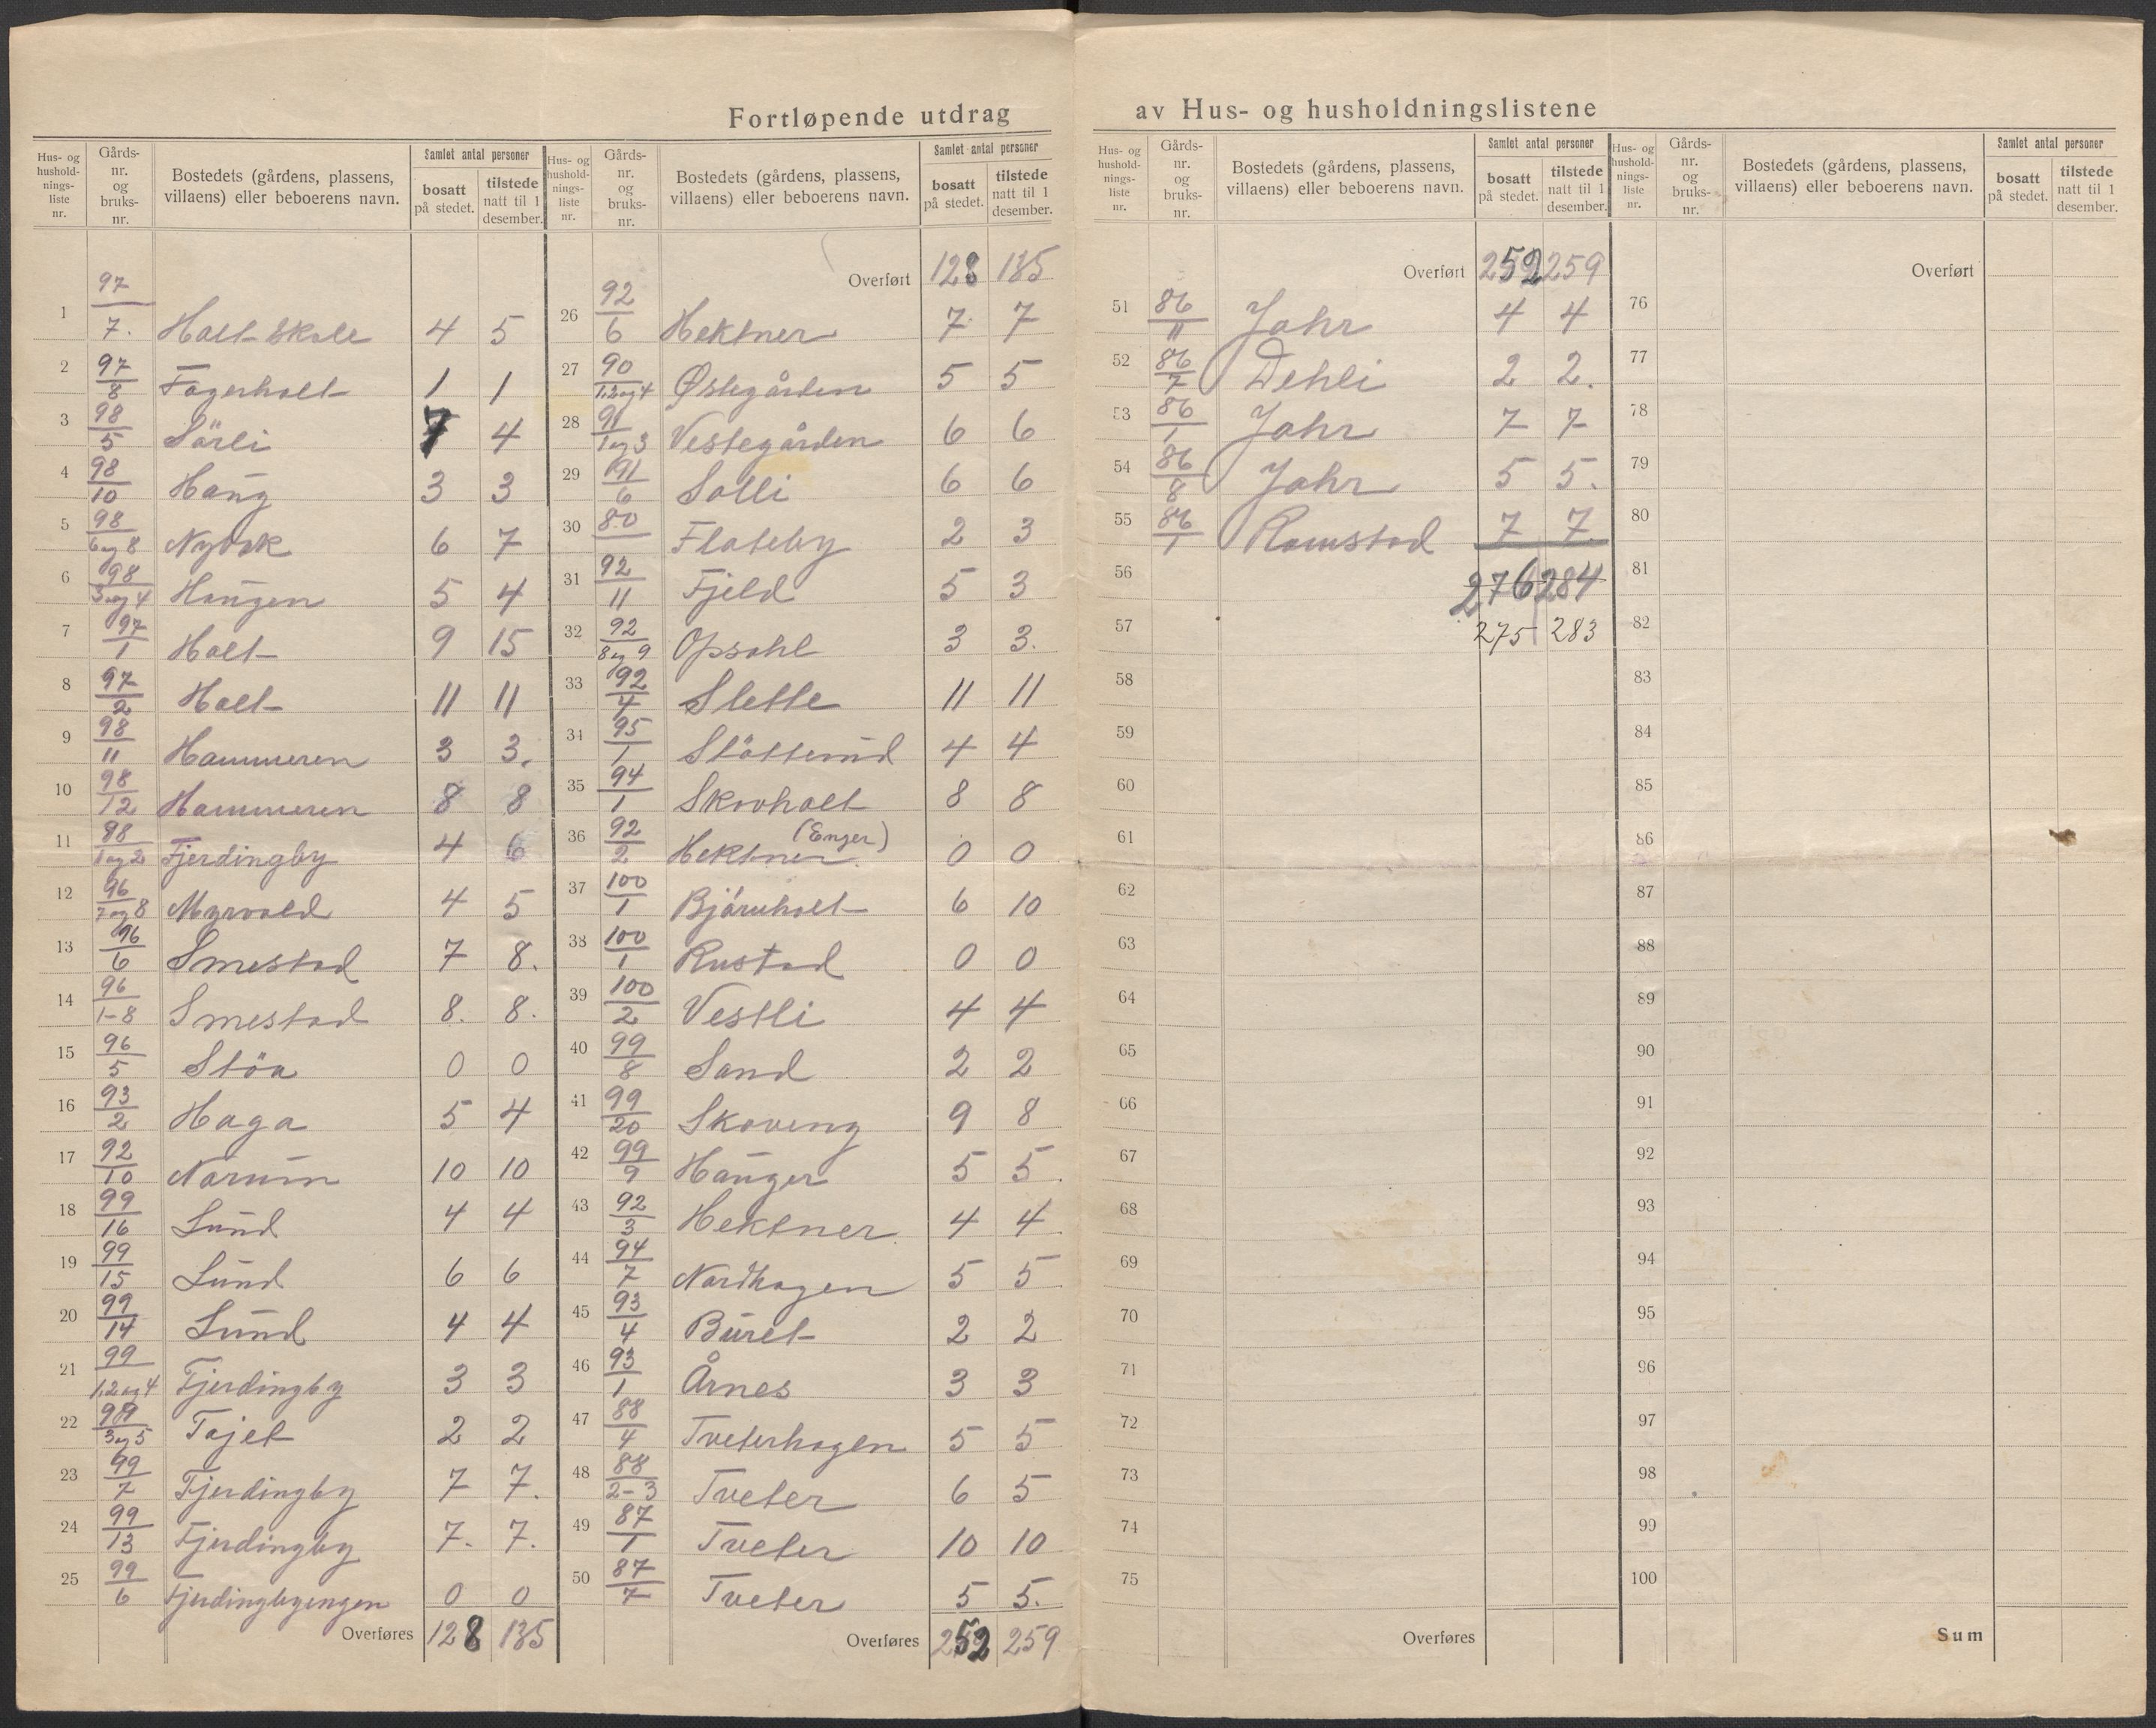 Fortløpende utdrag av Hus- og husholdningslistene
Hus- og hushold-nings-liste nr. | Gårds-nr. og bruks-nr. | Bostedets (gårdens, plassens, villaens) eller beboerens navn. | Samlet antal personer | bosatt på stedet. | tilstede natt til 1 desember.
1 97/7. Holt skole 4 5
2 97/8 Fagerholt 1 1
3 98/5 Sörli 7 4
4 98/10 Haug 3 3
5 98/6 og 8 Nybrk 6 7
6 98/3 og 4 Haugen 5 4
7 97/1 Holt 9 15
8 97/2 Holt 11 11
9 98/11 Hammeren 3 3.
10 98/12 Hammeren 8 8
11 88/1 og 2 Fjerdingby 4 6
12 96/7 og 8 Myrvold 4 5
13 96/6 Smestad 7 8.
14 96/1-8 Smestad 8. 8.
15 96/5 Stöa 0 0
16 93/2 Haga 5 4
17 92/10 Narum 10 10
18 99/16 Lund 4 4
19 99/15 Lund 6 6
20 99/14 Lund 4 4
21 99/1,2 og 4 Fjerdingby 3 3
22 99/3 og 5 Tajet 2 2
23 99/7 Fjerdingby 7 7.
24 99/13 Fjerdingby 7. 7.
25 99/6 Fjerdingbyengen 0 0
Overføres 128 135
Hus- og hushold-nings-liste nr. | Gårds-nr. og bruks-nr. | Bostedets (gårdens, plassens, villaens) eller beboerens navn. | Samlet antal personer | bosatt på stedet. | tilstede natt til 1 desember.
Overført 128 135
26 92/6 Hektner 7 7
27 90/1,2 og 4 Østegården 5 5
28 91/1 og 3 Vestegården 6 6
29 91/6 Solli 6 6
30 80 Flateby 2 3
31 92/11 Fjeld 5 3
32 92/8 og 9 Opsahl 3 3.
33 92/4 Slette 11 11
34 95/1 Slöttemd 4 4
35 94/1 Skovholt 8 8
36 92/2 Hektner (Enger) 0 0
37 100/1 Bjórnholt 6 10
38 100/1 Rustad 0 0
39 100/2 Vestli 4 4
40 99/8 Sand 2 2
41 99/20 Skoveng 9 8
42 99/9 Hauger 5 5.
43 92/3 Hektner 4 4
44 94/7 Nordhagen 5 5
45 93/4 Buret 2 2
46 93/1 Årnes 3 3
47 88/4 Tveterhagen 5 5
48 88/2-3 Tveter 6 5
49 87/1 Tveter 10 10
50 87/7 Tveter 5 5.
Overføres 252 259
Hus- og hushold-nings-liste nr. | Gårds-nr. og bruks-nr. | Bostedets (gårdens, plassens, villaens) eller beboerens navn. | Samlet antal personer | bosatt på stedet. | tilstede natt til 1 desember.
Overført 252 259
51 86/11 Jahr 4 4
52 86/7 Dehli 2 2.
53 86/1 Jahr 7 7
54 86/8 Jahr 5 5.
55 86/1 Romstad 7 7.
56 276 284
57 275 283
58
59
60
61
62
63
64
65
66
67
68
69
70
71
72
73
74
75
Overføres
Hus- og hushold-nings-liste nr. | Gårds-nr. og bruks-nr. | Bostedets (gårdens, plassens, villaens) eller beboerens navn. | Samlet antal personer | bosatt på stedet. | tilstede natt til 1 desember.
Overført
76
77
78
79
80
81
82
83
84
85
86
87
88
89
90
91
92
93
94
95
96
97
98
99
100
Sum